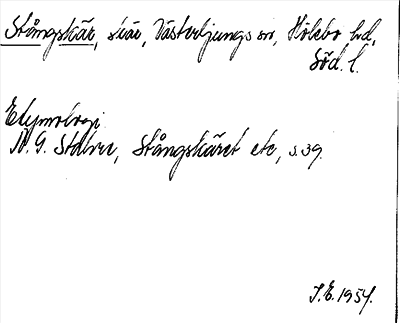 Stångskär, skär, Västerljungs sn, Hölebo hd,
Söd. l.
Etymologi
N. G. Stahre, Stångskäret etc, s. 39.
J.E. 1954.